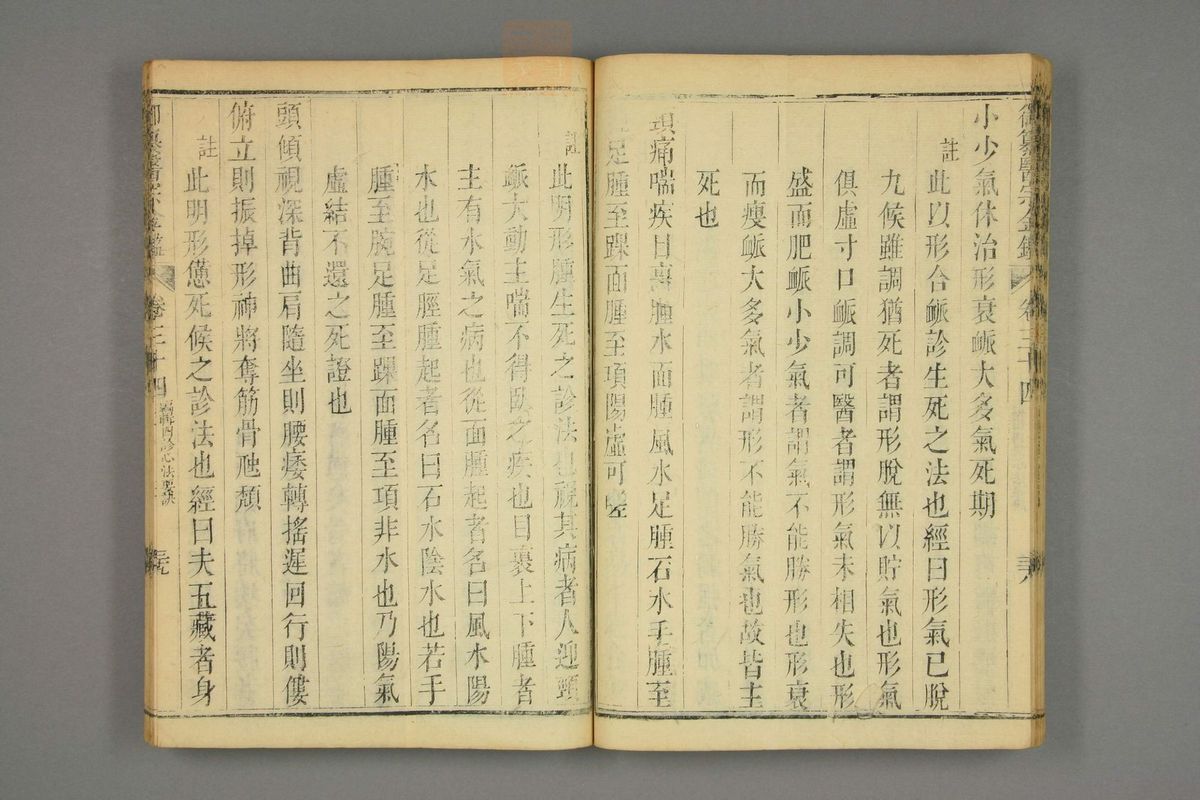 御纂醫宗金鑑 卷三十四 三八
小少氣休治形衰脈大多氣死期
註 此以形合脈診生死之法也經曰形氣已脫
九候雖調猶死者謂形脫無以貯氣也形氣
俱虛寸口脈調可醫者謂形氣未相失也形
盛而肥脈小少氣者謂氣不能勝形也形衰
而瘦脈大多氣者謂形不能勝氣也故皆主
死也
頸痛喘疾目裹腫水面腫風水足腫石水手腫至
足腫至踝面腫至項陽虛可嗟
註 此明形腫生死之診法也視其病者人迎頸
脈大動主喘不得臥之疾也目裹上下腫者
主有水氣之病也從面腫起者名曰風水陽
水也從足脛腫起者名曰石水陰水也若手
腫至腕足腫至踝面腫至項非水也乃陽氣
虛結不還之死證也
頭傾視深背曲肩隨坐則腰痿轉搖遲回行則僂
俯立則振掉形神將奪筋骨虺頹
註 此明形憊死候之診法也經曰夫五藏者身
御纂醫宗金鑑 卷三十四 編輯四診心法要訣 三九